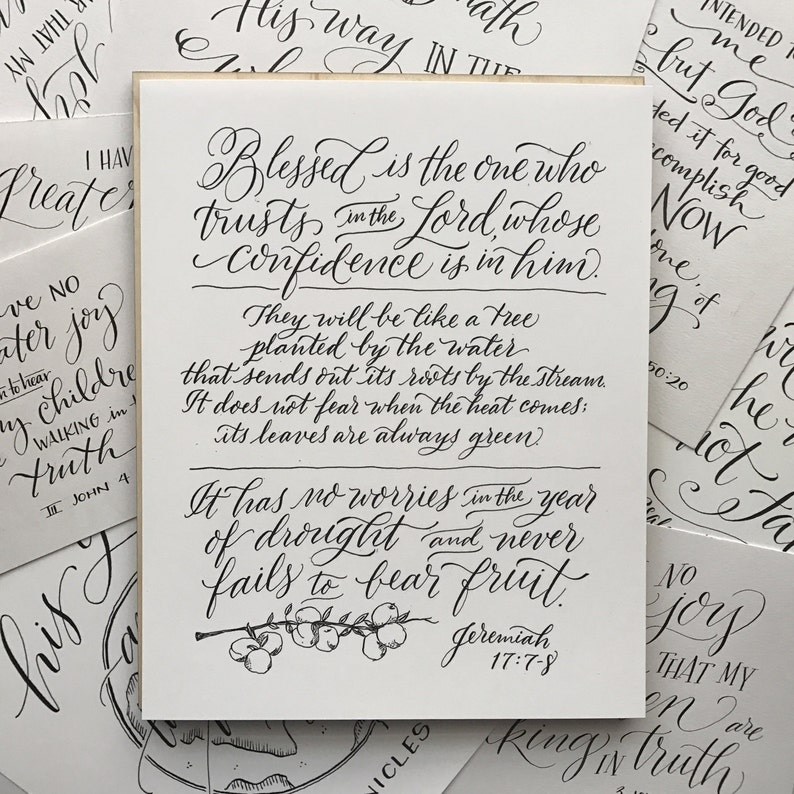 Blessed is the one who
trusts in the Lord, whose
confidence is in him.
They will be like a tree
planted by the water
that sends out its roots by the stream.
It does not fear when the heat comes;
its leaves are always green.
It has no worries in the year
of drought and never
fails to bear fruit.
Jeremiah
17:7-8
THAT MY
His way IN THE
INTENDED
me
but God
it for good
accomplish
NOW
of
50:20
I HAVE
greater
NO
joy
to hear
my children
WALKING in
truth
III JOHN 4
his
he
not
NO
joy
THAT MY
are
IN truth